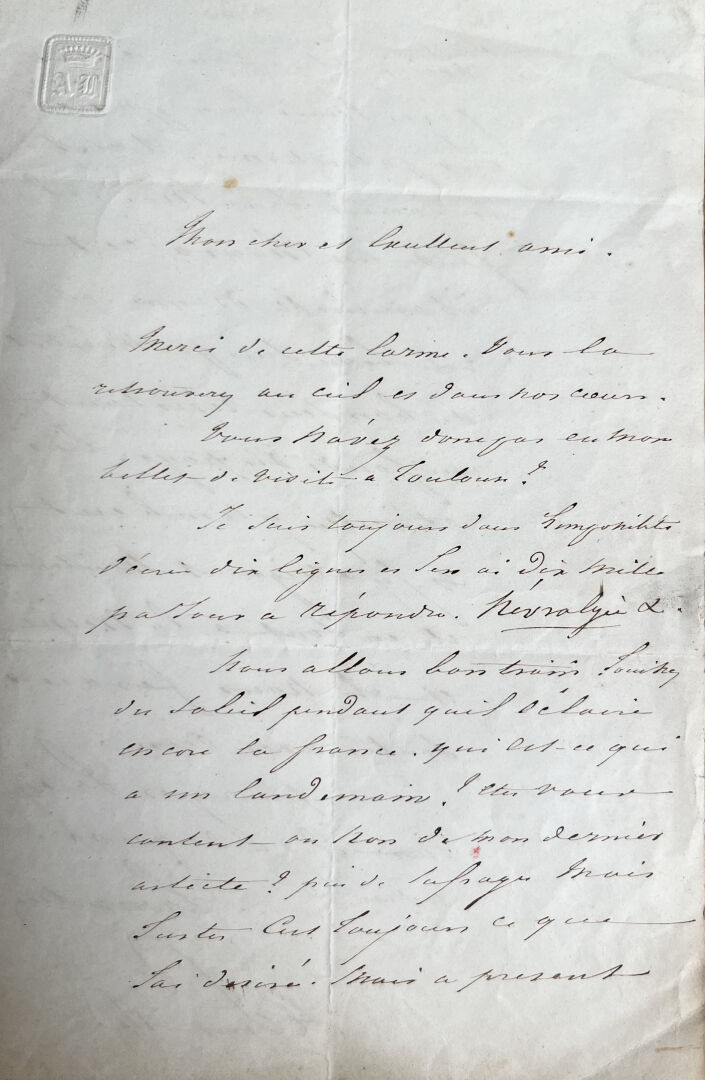 AL
Mon cher et Excellent ami.
Merci de cette larme. Vous la
retrouverez au ciel et dans nos cœurs.
Vous n'avez donc pas eu mon
billet de visite à Toulon ?
Je suis toujours dans l'impossibilité
d'écrire dix lignes et j'en ai dix mille
par jour a répondre. Névralgie &.
Nous allons bon train. Jouissez
du soleil pendant quil éclaire
encore la france. qui est-ce qui
a un landemain ? Etes vous
content ou non de mon dernier
article ? pas de suffrage Mais
Juste C'est toujours ce que
J'ai desiré. Mais a present